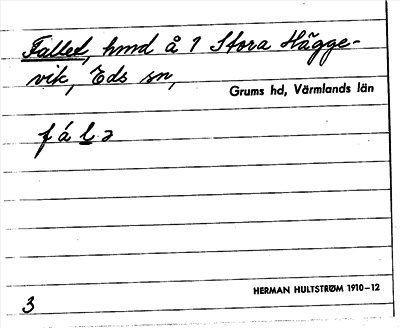 Fallet, hmd å 1 Stora Hägge-
vik, Eds sn,
Grums hd, Värmlands län
fáḻə
HERMAN HULTSTRØM 1910–12
3